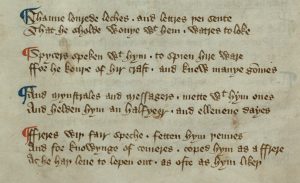 Thanne lourede leches . and lettres þei sente
That he sholde wonye wᵗ hem . watres to loke
Spycers speken wᵗ hym . to spien hire ware
ffor he kouþe of hir craft . and knew manye gōmes
And mynstrales and messagers . mette wᵗ hym ones
And helden hym an half yeer . and elleuene dayes
ffreres wiþ fair speche . fetten hym þennes
And for knowynge of comeres . coped hym as a ffrere
Ac he haþ leue to lepen out . as ofte as hym likeþ